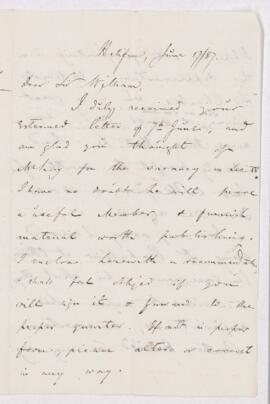 Halifax, June 17/87.
Dear Sir William,
I duly received your
esteemed letter of 7th June, and
am glad you thought of
McKay for the vacancy in Sec. IV.
I have no doubt he will prove
a useful Member, & furnish
material worth publishing.
I enclose herewith a recommendat
& shall feel obliged if you
will sign it & forward to the
proper quarter. If not in proper
form, please alter or correct
in any way.